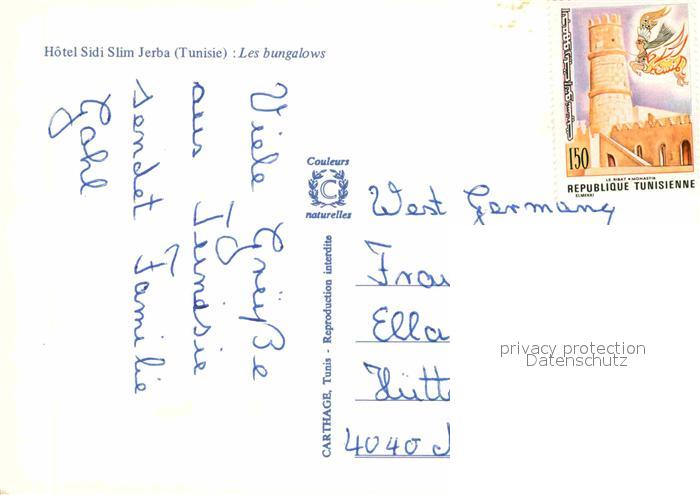 Hôtel Sidi Slim Jerba (Tunisie) : Les bungalows
Viele Grüße
aus Tunesie
sendet Familie
Gahl
Couleurs
C
naturelles
CARTHAGE, Tunis - Reproduction interdite
150
LE RIBAT * MONASTIR
REPUBLIQUE TUNISIENNE
ELMEKKI
West Germany
Frau
Ella
Hütt
4040
privacy protection
Datenschutz